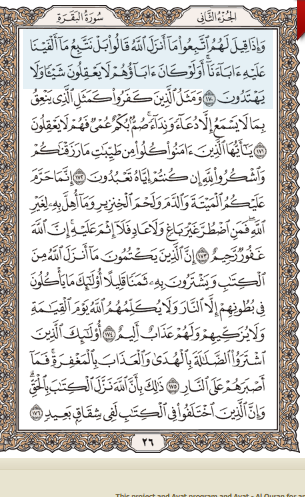 الجزء الثاني
سورة البقرة
وَإِذَا قِيلَ لَهُمُ ٱتَّبِعُوا۟ مَآ أَنزَلَ ٱللَّهُ قَالُوا۟ بَلْ نَتَّبِعُ مَآ أَلْفَيْنَا
عَلَيْهِ ءَابَآءَنَآ أَوَلَوْ كَانَ ءَابَآؤُهُمْ لَا يَعْقِلُونَ شَيْـًٔا وَلَا
يَهْتَدُونَ ١٧٠ وَمَثَلُ ٱلَّذِينَ كَفَرُوا۟ كَمَثَلِ ٱلَّذِى يَنْعِقُ
بِمَا لَا يَسْمَعُ إِلَّا دُعَآءً وَنِدَآءً صُمٌّۢ بُكْمٌ عُمْىٌ فَهُمْ لَا يَعْقِلُونَ
١٧١ يَـٰٓأَيُّهَا ٱلَّذِينَ ءَامَنُوا۟ كُلُوا۟ مِن طَيِّبَـٰتِ مَا رَزَقْنَـٰكُمْ
وَٱشْكُرُوا۟ لِلَّهِ إِن كُنتُمْ إِيَّاهُ تَعْبُدُونَ ١٧٢ إِنَّمَا حَرَّمَ
عَلَيْكُمُ ٱلْمَيْتَةَ وَٱلدَّمَ وَلَحْمَ ٱلْخِنزِيرِ وَمَآ أُهِلَّ بِهِۦ لِغَيْرِ
ٱللَّهِ فَمَنِ ٱضْطُرَّ غَيْرَ بَاغٍ وَلَا عَادٍ فَلَآ إِثْمَ عَلَيْهِ إِنَّ ٱللَّهَ
غَفُورٌ رَّحِيمٌ ١٧٣ إِنَّ ٱلَّذِينَ يَكْتُمُونَ مَآ أَنزَلَ ٱللَّهُ مِنَ
ٱلْكِتَـٰبِ وَيَشْتَرُونَ بِهِۦ ثَمَنًا قَلِيلًا أُو۟لَـٰٓئِكَ مَا يَأْكُلُونَ
فِى بُطُونِهِمْ إِلَّا ٱلنَّارَ وَلَا يُكَلِّمُهُمُ ٱللَّهُ يَوْمَ ٱلْقِيَـٰمَةِ
وَلَا يُزَكِّيهِمْ وَلَهُمْ عَذَابٌ أَلِيمٌ ١٧٤ أُو۟لَـٰٓئِكَ ٱلَّذِينَ
ٱشْتَرَوُا۟ ٱلضَّلَـٰلَةَ بِٱلْهُدَىٰ وَٱلْعَذَابَ بِٱلْمَغْفِرَةِ فَمَآ
أَصْبَرَهُمْ عَلَى ٱلنَّارِ ١٧٥ ذَٰلِكَ بِأَنَّ ٱللَّهَ نَزَّلَ ٱلْكِتَـٰبَ بِٱلْحَقِّ
وَإِنَّ ٱلَّذِينَ ٱخْتَلَفُوا۟ فِى ٱلْكِتَـٰبِ لَفِى شِقَاقٍۭ بَعِيدٍ ١٧٦
٢٦